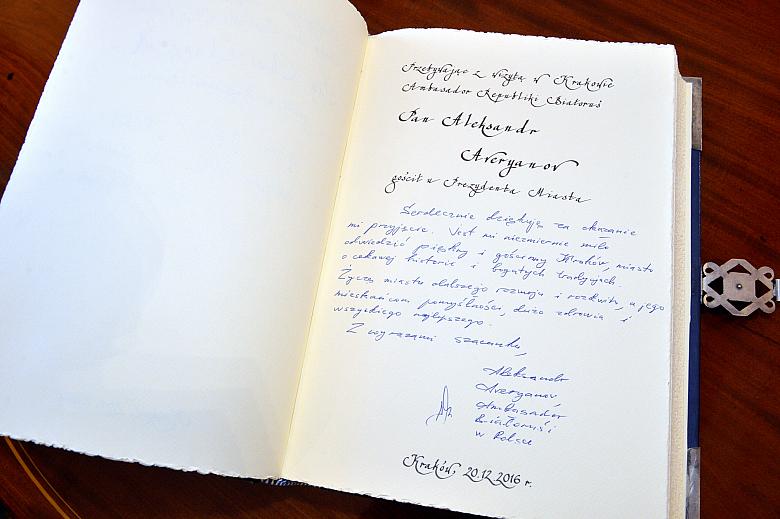 Przebywając z wizytą w Krakowie
Ambasador Republiki Białoruś
Pan Aleksandr
Averyanov
gościł u Prezydenta Miasta
Serdecznie dziękuję za okazanie
mi przyjęcie. Jest mi niezmiernie miło
odwiedzić piękny i gościnny Kraków, miasto
o ciekawej historii i bogatych tradycjach.
Życzę miastu dalszego rozwoju i rozkwitu, a jego
mieszkańcom pomyślności, dużo zdrowia i
wszystkiego najlepszego.
Z wyrazami szacunku,
Aleksandr
Averyanov
Ambasador
Białorusi
w Polsce
Kraków, 20.12.2016 r.